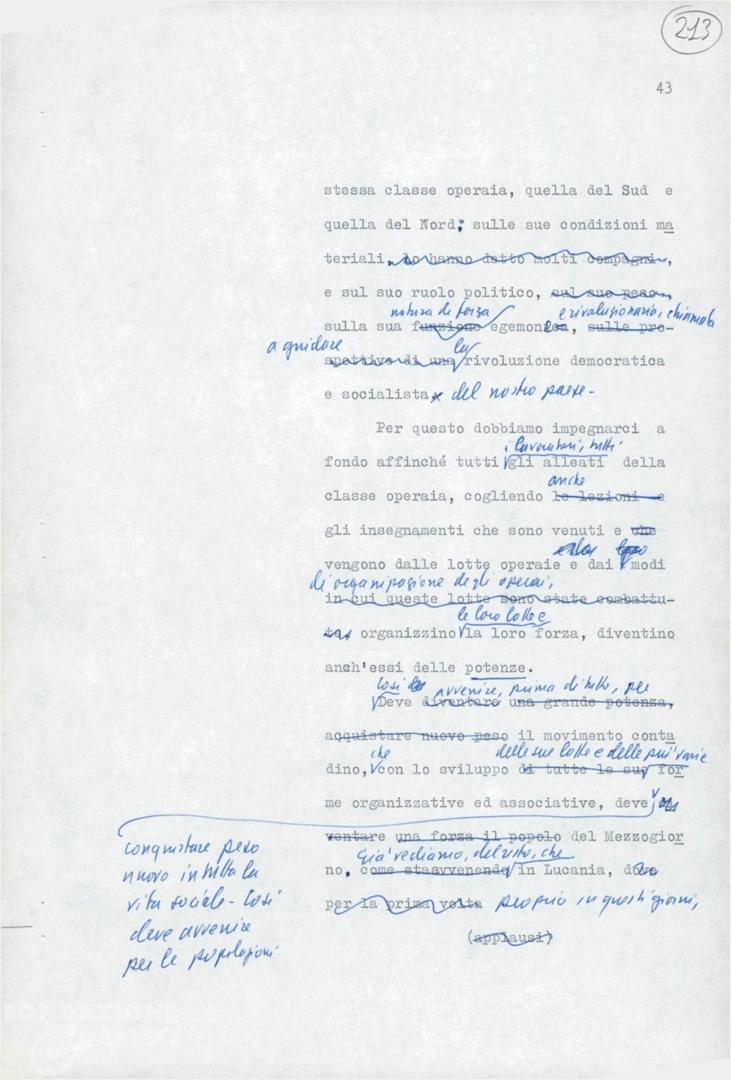 213
43
stessa classe operaia, quella del Sud e
quella del Nord; sulle sue condizioni ma
teriali, lo hanno detto molti compagni,
e sul suo ruolo politico, sul suo peso,
natura di forza e rivoluzionaria, chiamata
sulla sua funzione egemonica, sulle pro-
a guidare la
spettive di una rivoluzione democratica
e socialista del nostro paese -
Per questo dobbiamo impegnarci a
i lavoratori, tutti
fondo affinché tutti gli alleati della
anche
classe operaia, cogliendo le lezioni e
gli insegnamenti che sono venuti e che
vengono dalle lotte operaie e dai modi
di organizzazione degli operai,
in cui queste lotte sono state combattu-
le loro lotte e
te, organizzino la loro forza, diventino
anch'essi delle potenze.
Così avvenire, prima di tutto, per
Deve diventare una grande potenza,
acquistare nuovo peso il movimento conta
che delle sue lotte e delle più varie
dino, con lo sviluppo di tutte le sue for
me organizzative ed associative, deve di
ventare una forza il popolo del Mezzogior
già vediamo, del resto, che
no, come sta avvenendo in Lucania, dove
per la prima volta proprio in questi giorni,
(applausi)
conquistare peso
nuovo in tutta la
vita sociale - Così
deve avvenire
per le popolazioni
FONDAZIONE
GRAMSCI